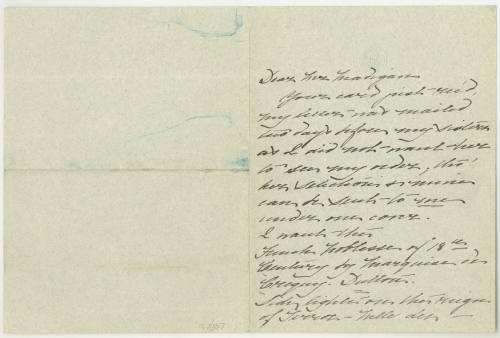 Dear Mr Madigan
Your card just rec'd,
my letter was mailed
two days before my sisters
as I did not want her
to see my order, tho'
her selections & mine
can be sent to me
under one cover.
I want this
French Noblesse of 18th
Century by Marquise de
Créquy. Dutton.
Side lights on the reign
of Terror – Mlle des